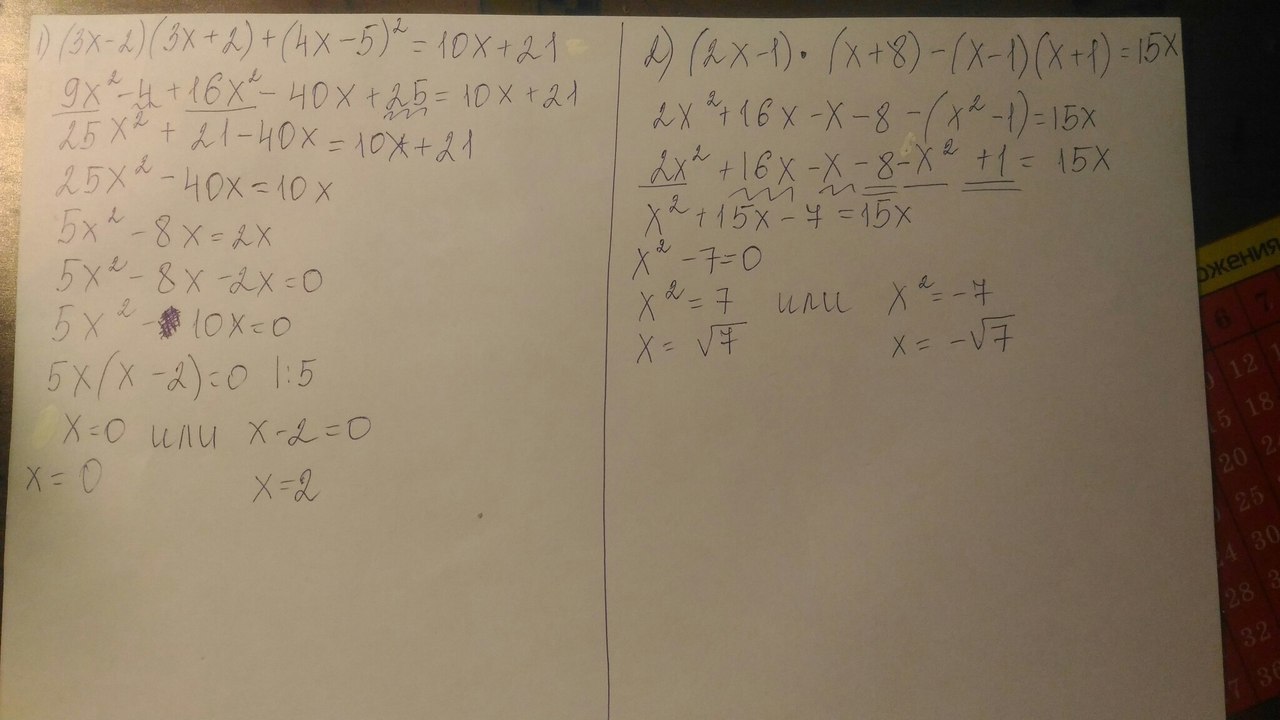 1) (3x-2)(3x+2)+(4x-5)²=10x+21
9x²-4+16x²-40x+25=10x+21
25x²+21-40x=10x+21
25x²-40x=10x
5x²-8x=2x
5x²-8x-2x=0
5x²-10x=0
5x(x-2)=0 |:5
x=0 или x-2=0
x=0 x=2
2) (2x-1)·(x+8)-(x-1)(x+1)=15x
2x²+16x-x-8-(x²-1)=15x
2x²+16x-x-8-x²+1=15x
x²+15x-7=15x
x²-7=0
x²=7 или x²=-7
x=√7 x=-√7
ожения
6 7
12
15 18
20
25
24 30
28
32
36